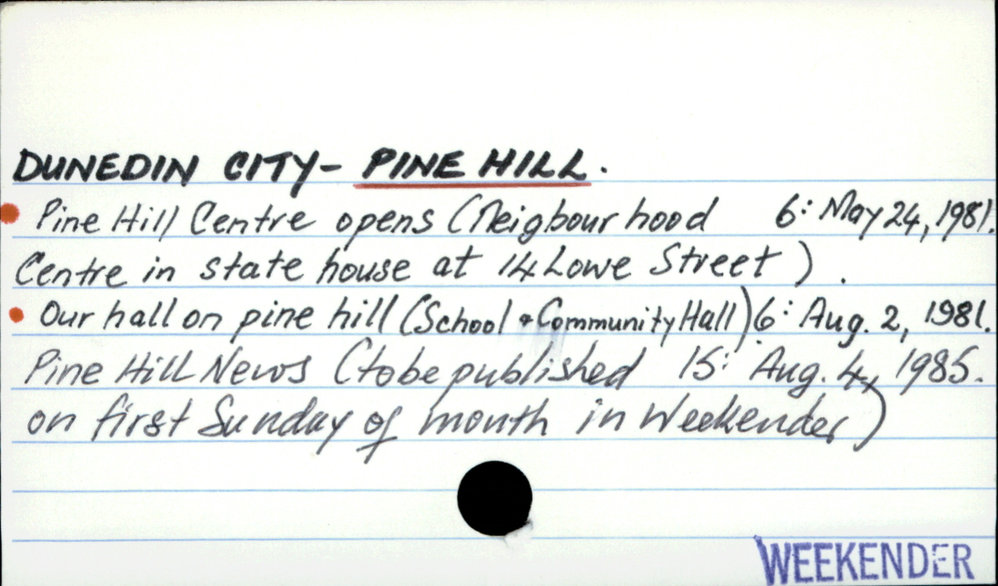 DUNEDIN CITY - PINE HILL.
Pine Hill Centre opens (Neigbourhood 6: May 24, 1981.
Centre in state house at 14 Lowe Street).
Our hall on pine hill (School & Community Hall) 6: Aug. 2, 1981.
Pine Hill News (to be published 15: Aug. 4, 1985.
on first Sunday of month in Weekender)
WEEKENDER